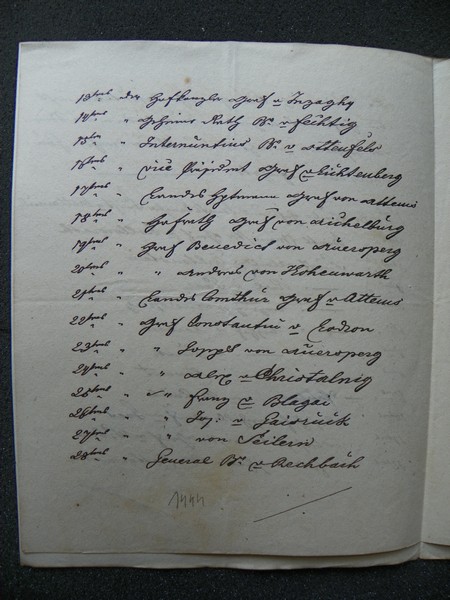 13tens der Hofkanzler Graf v Inzaghy
14tens " Geheime Rath Br. v Fechtig
15tens " Internuntius Br. v Ottenfels
16tens " Vice Präsident Graf v Lichtenberg
17tens " Landes Hptmann Graf von Attems
18tens " Hofrath Graf von Aichelburg
19tens " Graf Benedict von Auersperg
20tens " " Andreas von Hohenwarth
21tens " Landes Comthur Graf v Attems
22tens " Graf Constantin v Lodron
23tens " " von Auersperg
24tens " " Alex v Christalnig
25tens " " Franz v Blagai
26tens " " Jos: v Gaisruck
27tens " " von Seilern
28tens " General Br. v Rechbach
1444